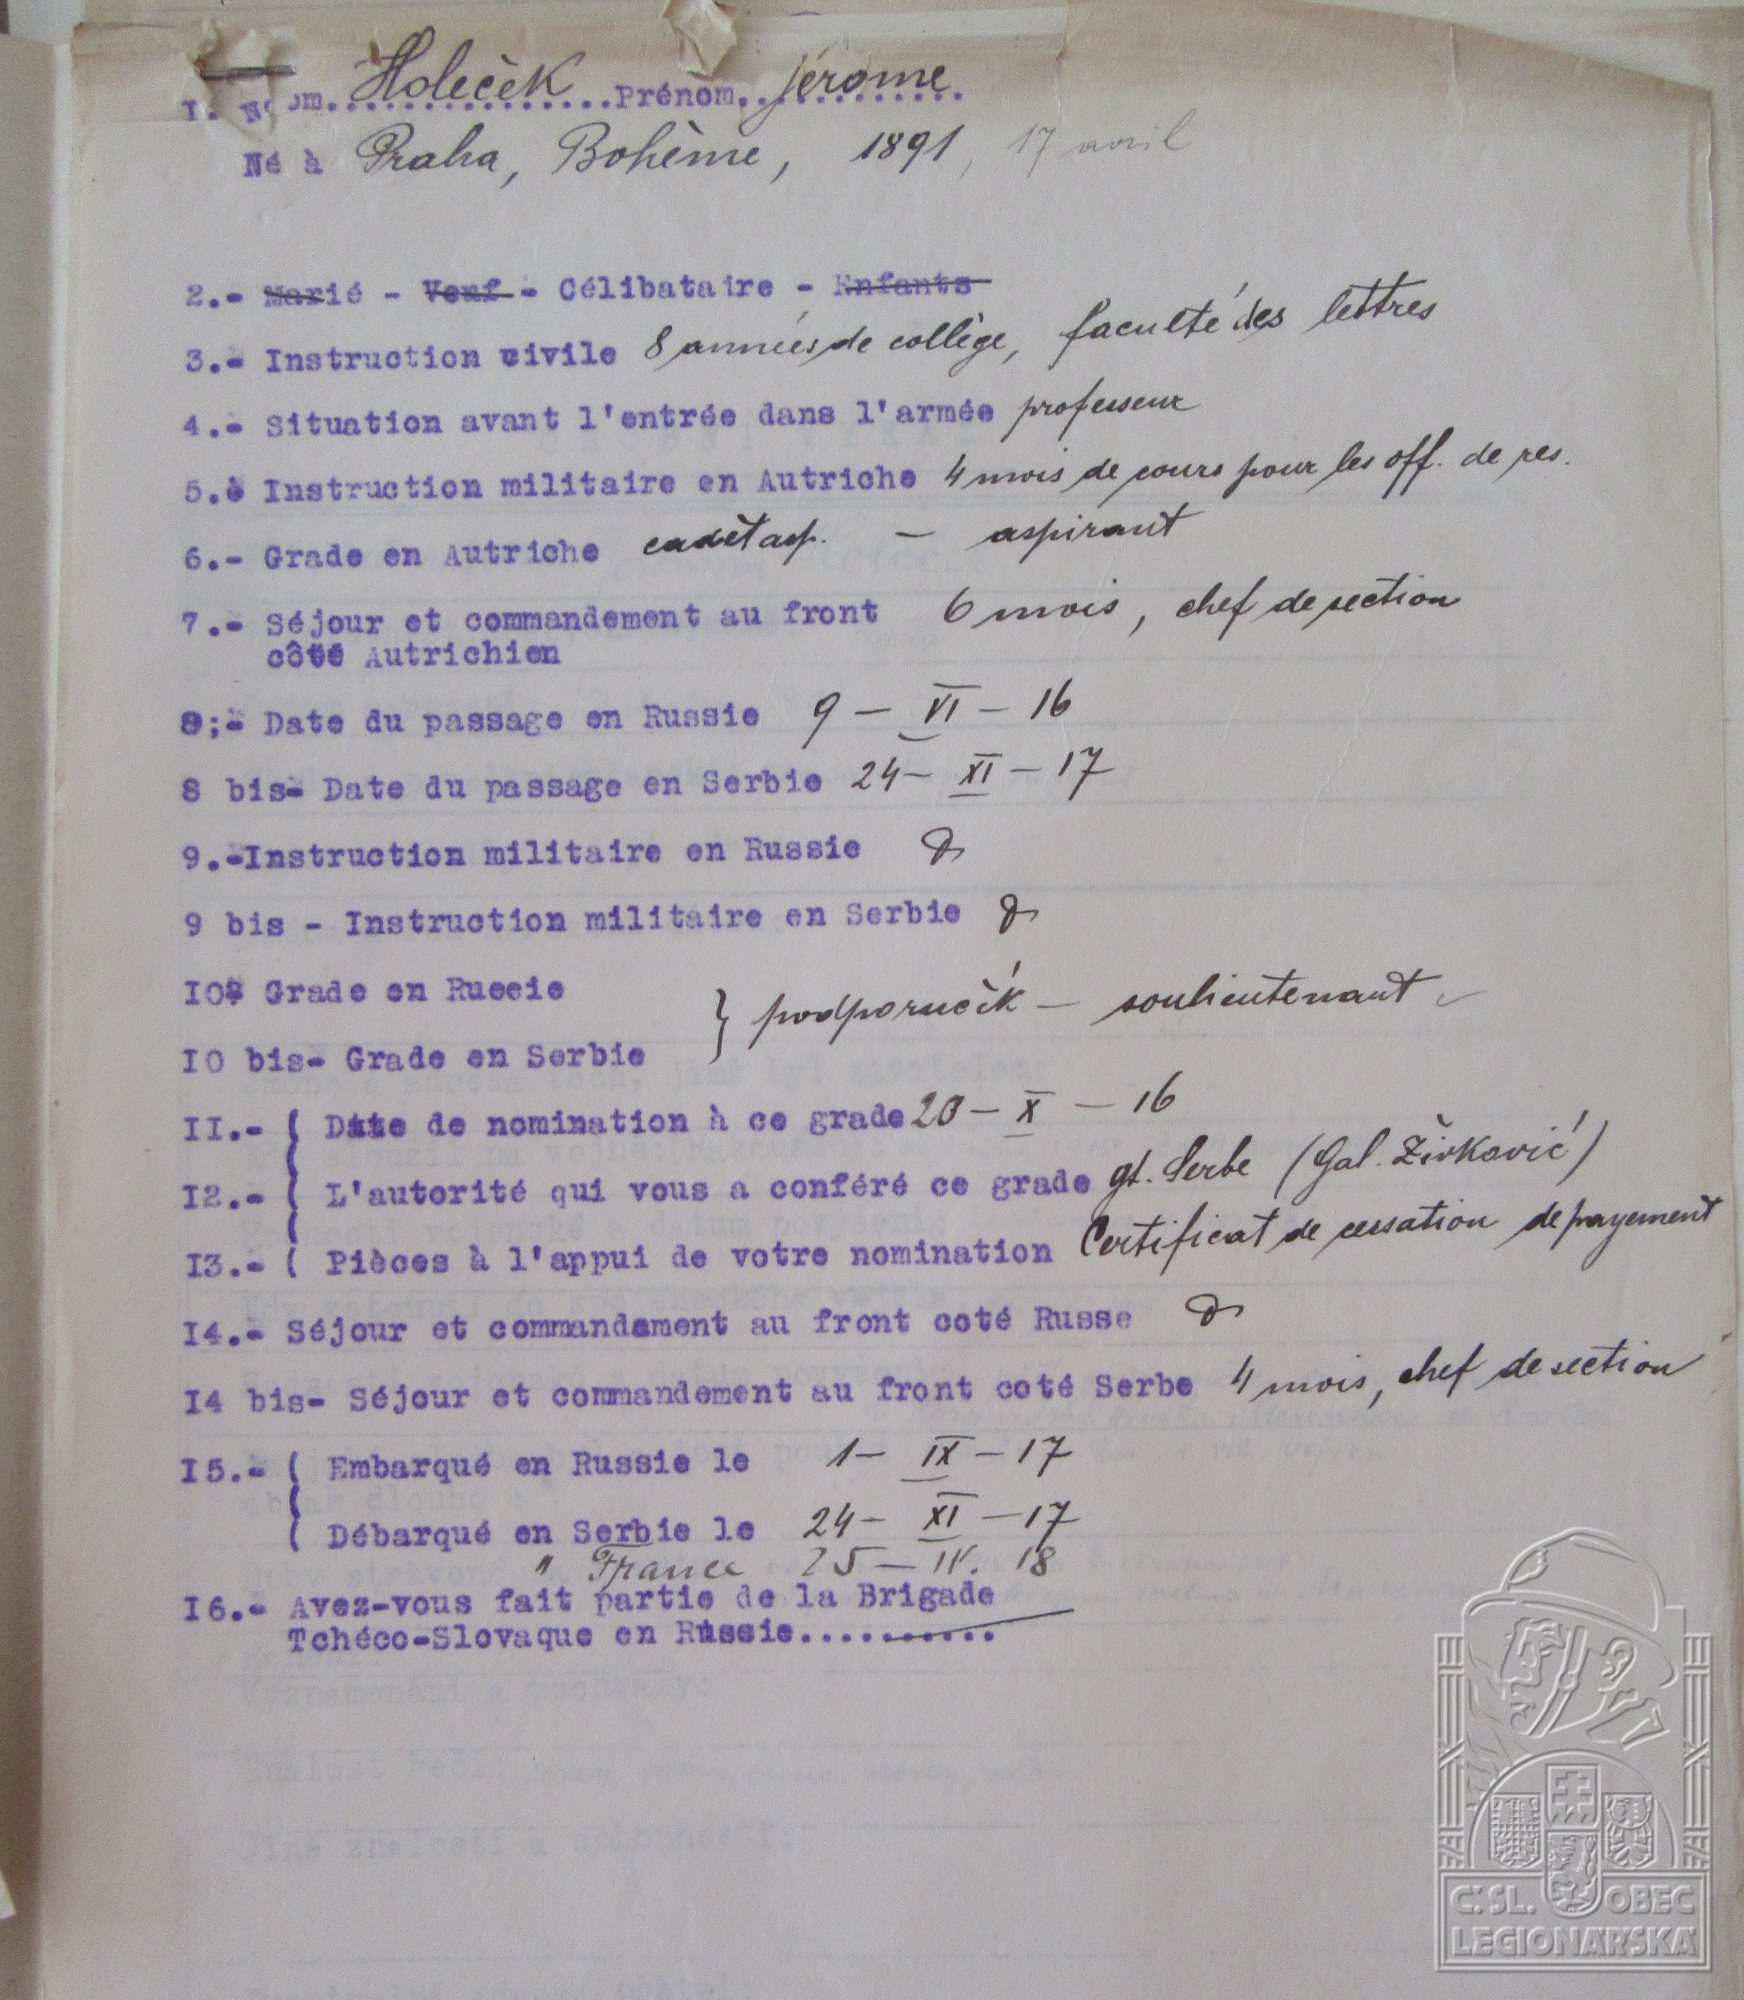 I. Nom. Holeček Prénom. Jérome
Né à Praha, Bohème, 1891, 17 avril
2.- Marié - Veuf - Célibataire - Enfants
3.- Instruction civile 8 années de collège, faculté des lettres
4.- Situation avant l'entrée dans l'armée professeur
5.- Instruction militaire en Autriche 4 mois de cours pour les off. de res.
6.- Grade en Autriche cadet asp. - aspirant
7.- Séjour et commandement au front 6 mois, chef de section
côté Autrichien
8;- Date du passage en Russie 9 - VI - 16
8 bis- Date du passage en Serbie 24 - XI - 17
9.-Instruction militaire en Russie
9 bis - Instruction militaire en Serbie
10 Grade en Russie
} podporučík - soulieutenant
10 bis- Grade en Serbie
II.- ( Date de nomination à ce grade 20 - X - 16
I2.- ( L'autorité qui vous a conféré ce grade gt. Serbe (Gal. Živković)
I3.- ( Pièces à l'appui de votre nomination Certificat de cessation de payement
I4.- Séjour et commandement au front coté Russe
I4 bis- Séjour et commandement au front coté Serbe 4 mois, chef de section
I5.- ( Embarqué en Russie le 1 - IX - 17
( Débarqué en Serbie le 24 - XI - 17
" France 25 - IV. 18
I6.- Avez-vous fait partie de la Brigade
Tchéco-Slovaque en Russie..........
Č.SL. OBEC
LEGIONÁŘSKÁ